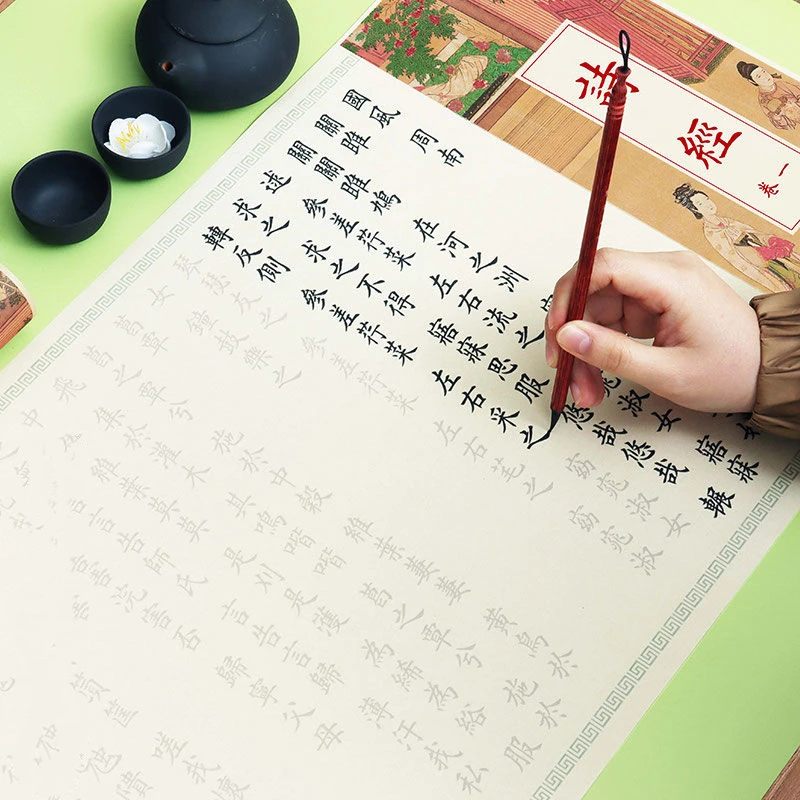 詩經
卷一
國風 周南
關雎
關關雎鳩 在河之洲
逑 參差荇菜 左右流之 淑女 寤寐
求之 求之不得 寤寐思服 悠哉悠哉 輾
轉反側 參差荇菜 左右采之 窈窕淑女
琴瑟友之 參差荇菜 左右芼之 窈窕淑
女 鐘鼓樂之
葛覃
葛之覃兮 施於中穀 維葉萋萋 黃鳥於
飛 集於灌木 其鳴喈喈 葛之覃兮 施於
中 維葉莫莫 是刈是濩 為絺為綌 服
言告師氏 言告言歸 薄汙我私
害浣害否 歸寧父母
筐 嗟我懷